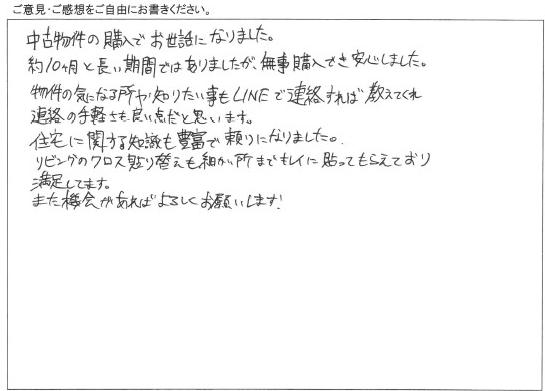 ご意見・ご感想をご自由にお書きください。
中古物件の購入でお世話になりました。
約10ヶ月と長い期間ではありましたが、無事購入でき安心しました。
物件の気になる所や知りたい事もLINEで連絡すれば教えてくれ
連絡の手軽さも良い点だと思います。
住宅に関する知識も豊富で頼りになりました。
リビングのクロス貼り替えも細かい所までキレイに貼ってもらえており
満足してます。
また機会があればよろしくお願いします!